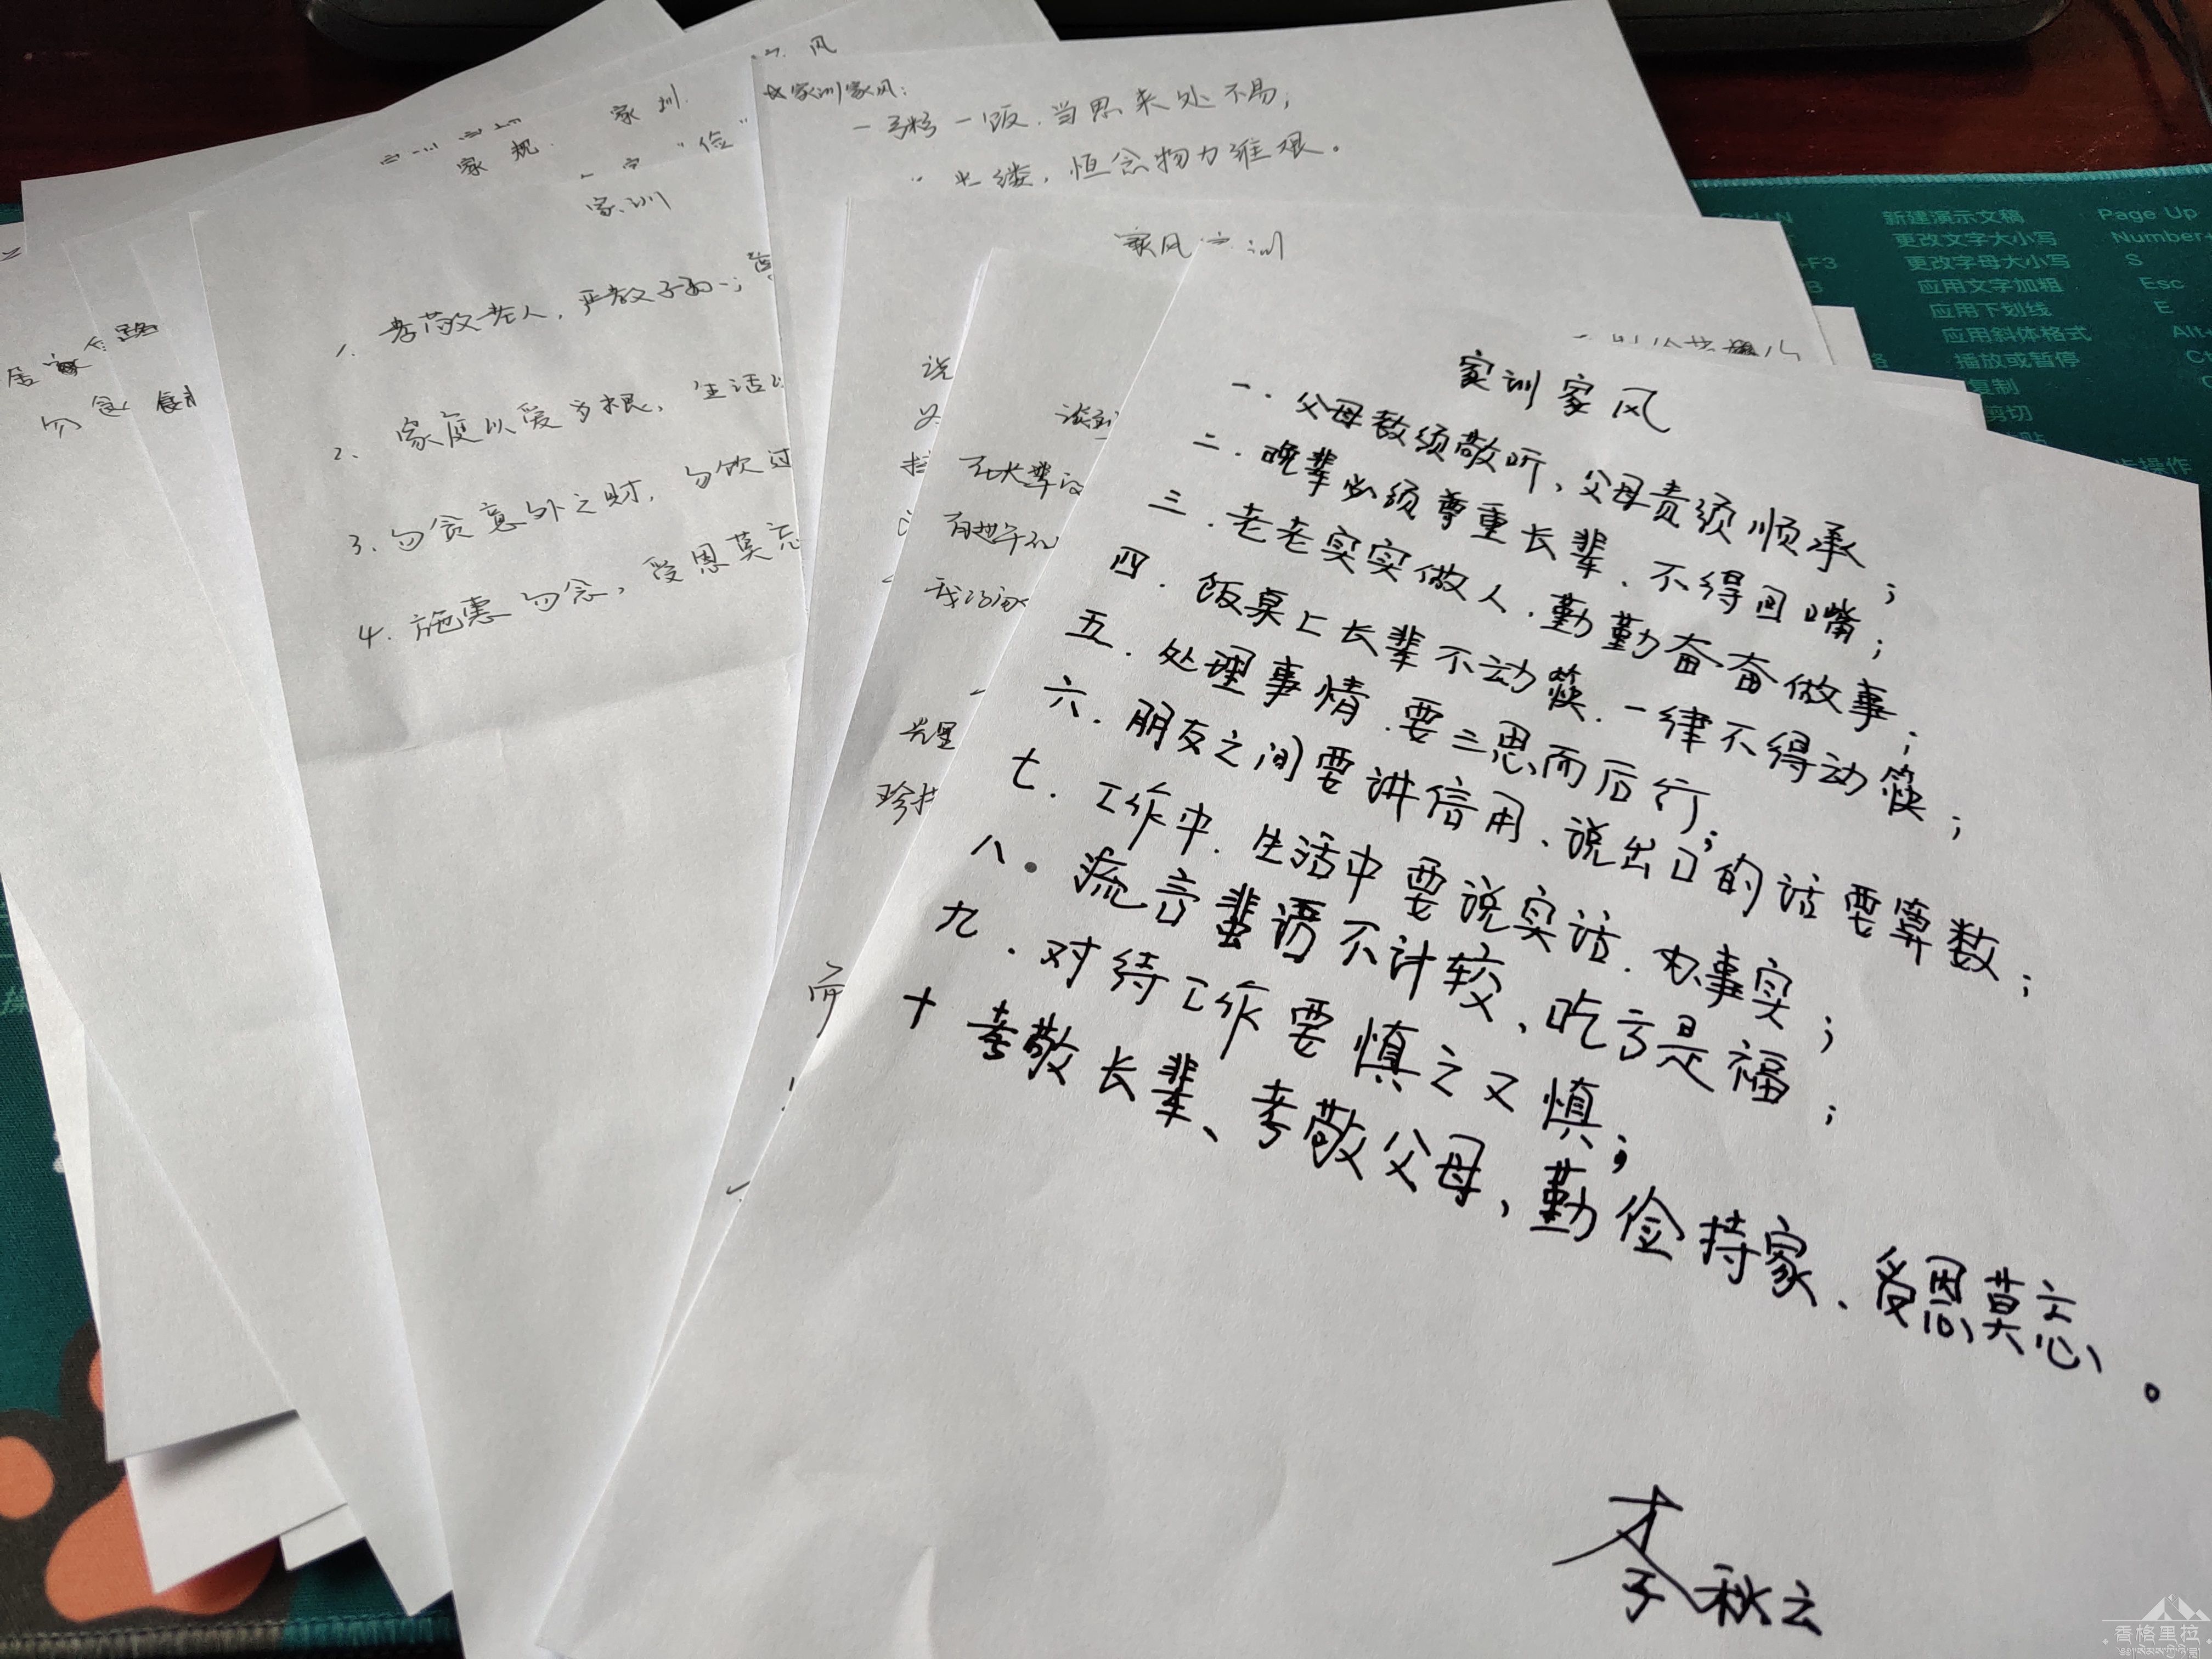 家训家风
一．父母教须敬听、父母责须顺承；
二．晚辈必须尊重长辈、不得回嘴；
三．老老实实做人．勤勤奋奋做事；
四．饭桌上长辈不动筷．一律不得动筷；
五．处理事情．要三思而后行；
六．朋友之间要讲信用、说出口的话要算数；
七．工作中．生活中要说实话．办事实；
八．流言蜚语不计较、吃亏是福；
九．对待工作要慎之又慎；
十 孝敬长辈、孝敬父母、勤俭持家．受恩莫忘。
李秋云
家训家风：
一粥一饭．当思来处不易，
缕，恒念物力维艰。
家风 训
家规．
家训．
"俭"
家训
1. 孝敬老人，严教子
2. 家庭以爱为根，生活
3. 勿贪意外之财．勿饮过
4. 施惠勿念，受恩莫忘
居家
勿
说
长辈
珍
新建演示文稿 Page Up
更改文字大小写 Number+
+F3 更改字母大小写 S
应用文字加粗 Esc
应用下划线 E
应用斜体格式 Alt+
播放或暂停
复制
剪切
操作
香格里拉